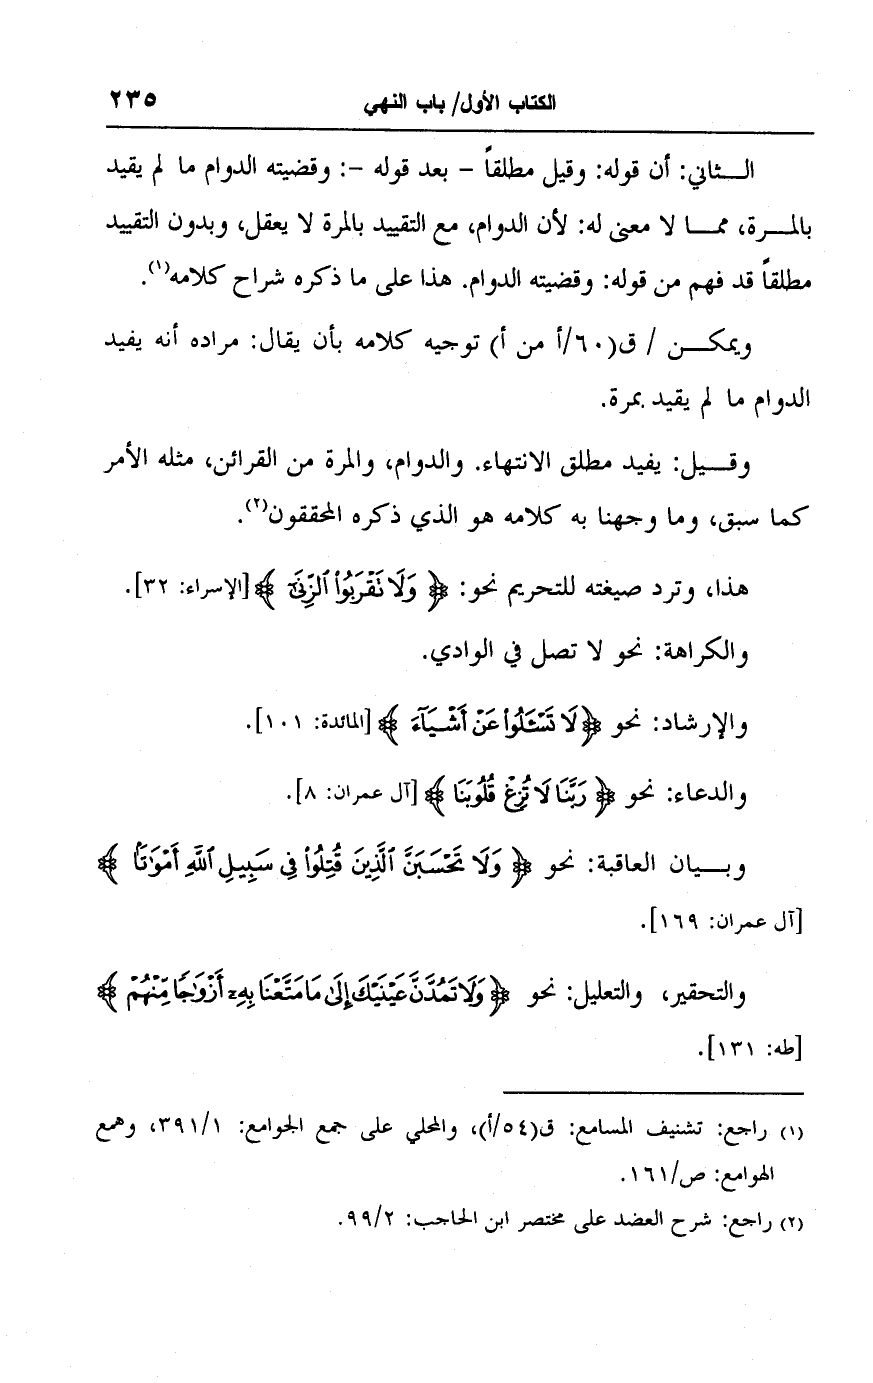 الكتاب الأول/ باب النهي ٢٣٥
الـــثاني: أن قوله: وقيل مطلقاً – بعد قوله –: وقضيته الدوام ما لم يقيد
بالمـــرة، ممـــا لا معنى له: لأن الدوام، مع التقييد بالمرة لا يعقل، وبدون التقييد
مطلقاً قد فهم من قوله: وقضيته الدوام. هذا على ما ذكره شراح كلامه(١).
ويمكـــن / ق(٦٠/أ من أ) توجيه كلامه بأن يقال: مراده أنه يفيد
الدوام ما لم يقيد بمرة.
وقـــيل: يفيد مطلق الانتهاء. والدوام، والمرة من القرائن، مثله الأمر
كما سبق، وما وجهنا به كلامه هو الذي ذكره المحققون(٢).
هذا، وترد صيغته للتحريم نحو: ﴿ وَلَا نَقْرَبُوا۟ ٱلزِّنَىٰٓ ﴾ [الإسراء: ٣٢].
والكراهة: نحو لا تصل في الوادي.
والإرشاد: نحو ﴿ لَا تَسْـَٔلُوا۟ عَنْ أَشْيَآءَ ﴾ [المائدة: ١٠١].
والدعاء: نحو ﴿ رَبَّنَا لَا تُزِغْ قُلُوبَنَا ﴾ [آل عمران: ٨].
وبـــيان العاقبة: نحو ﴿ وَلَا تَحْسَبَنَّ ٱلَّذِينَ قُتِلُوا۟ فِى سَبِيلِ ٱللَّهِ أَمْوَٰتًۢا ﴾
[آل عمران: ١٦٩].
والتحقير، والتعليل: نحو ﴿ وَلَا تَمُدَّنَّ عَيْنَيْكَ إِلَىٰ مَا مَتَّعْنَا بِهِۦٓ أَزْوَٰجًا مِّنْهُمْ ﴾
[طه: ١٣١].
(١) راجع: تشنيف المسامع: ق(٥٤/أ)، والمحلي على جمع الجوامع: ٣٩١/١، وهمع
الهوامع: ص/١٦١.
(٢) راجع: شرح العضد على مختصر ابن الحاجب: ٩٩/٢.